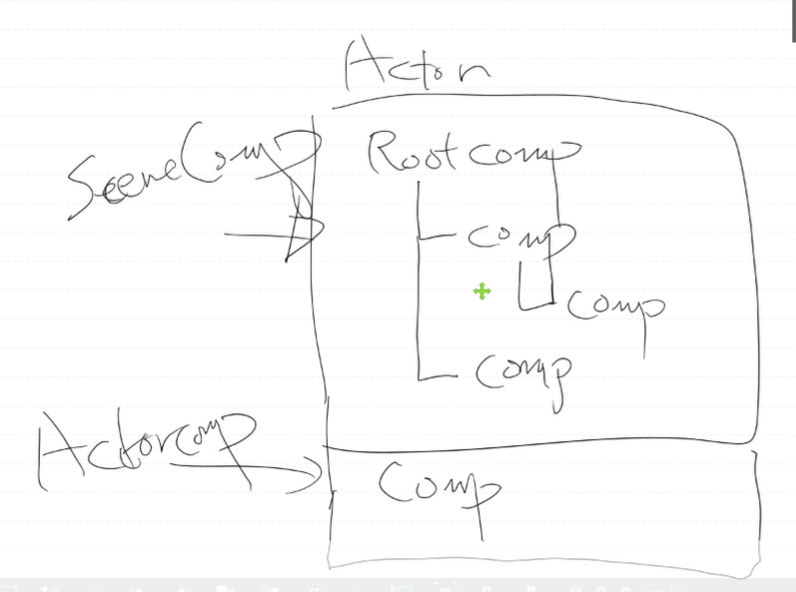 Actor
SceneComp
Root comp
comp
comp
comp
Actorcomp
Comp